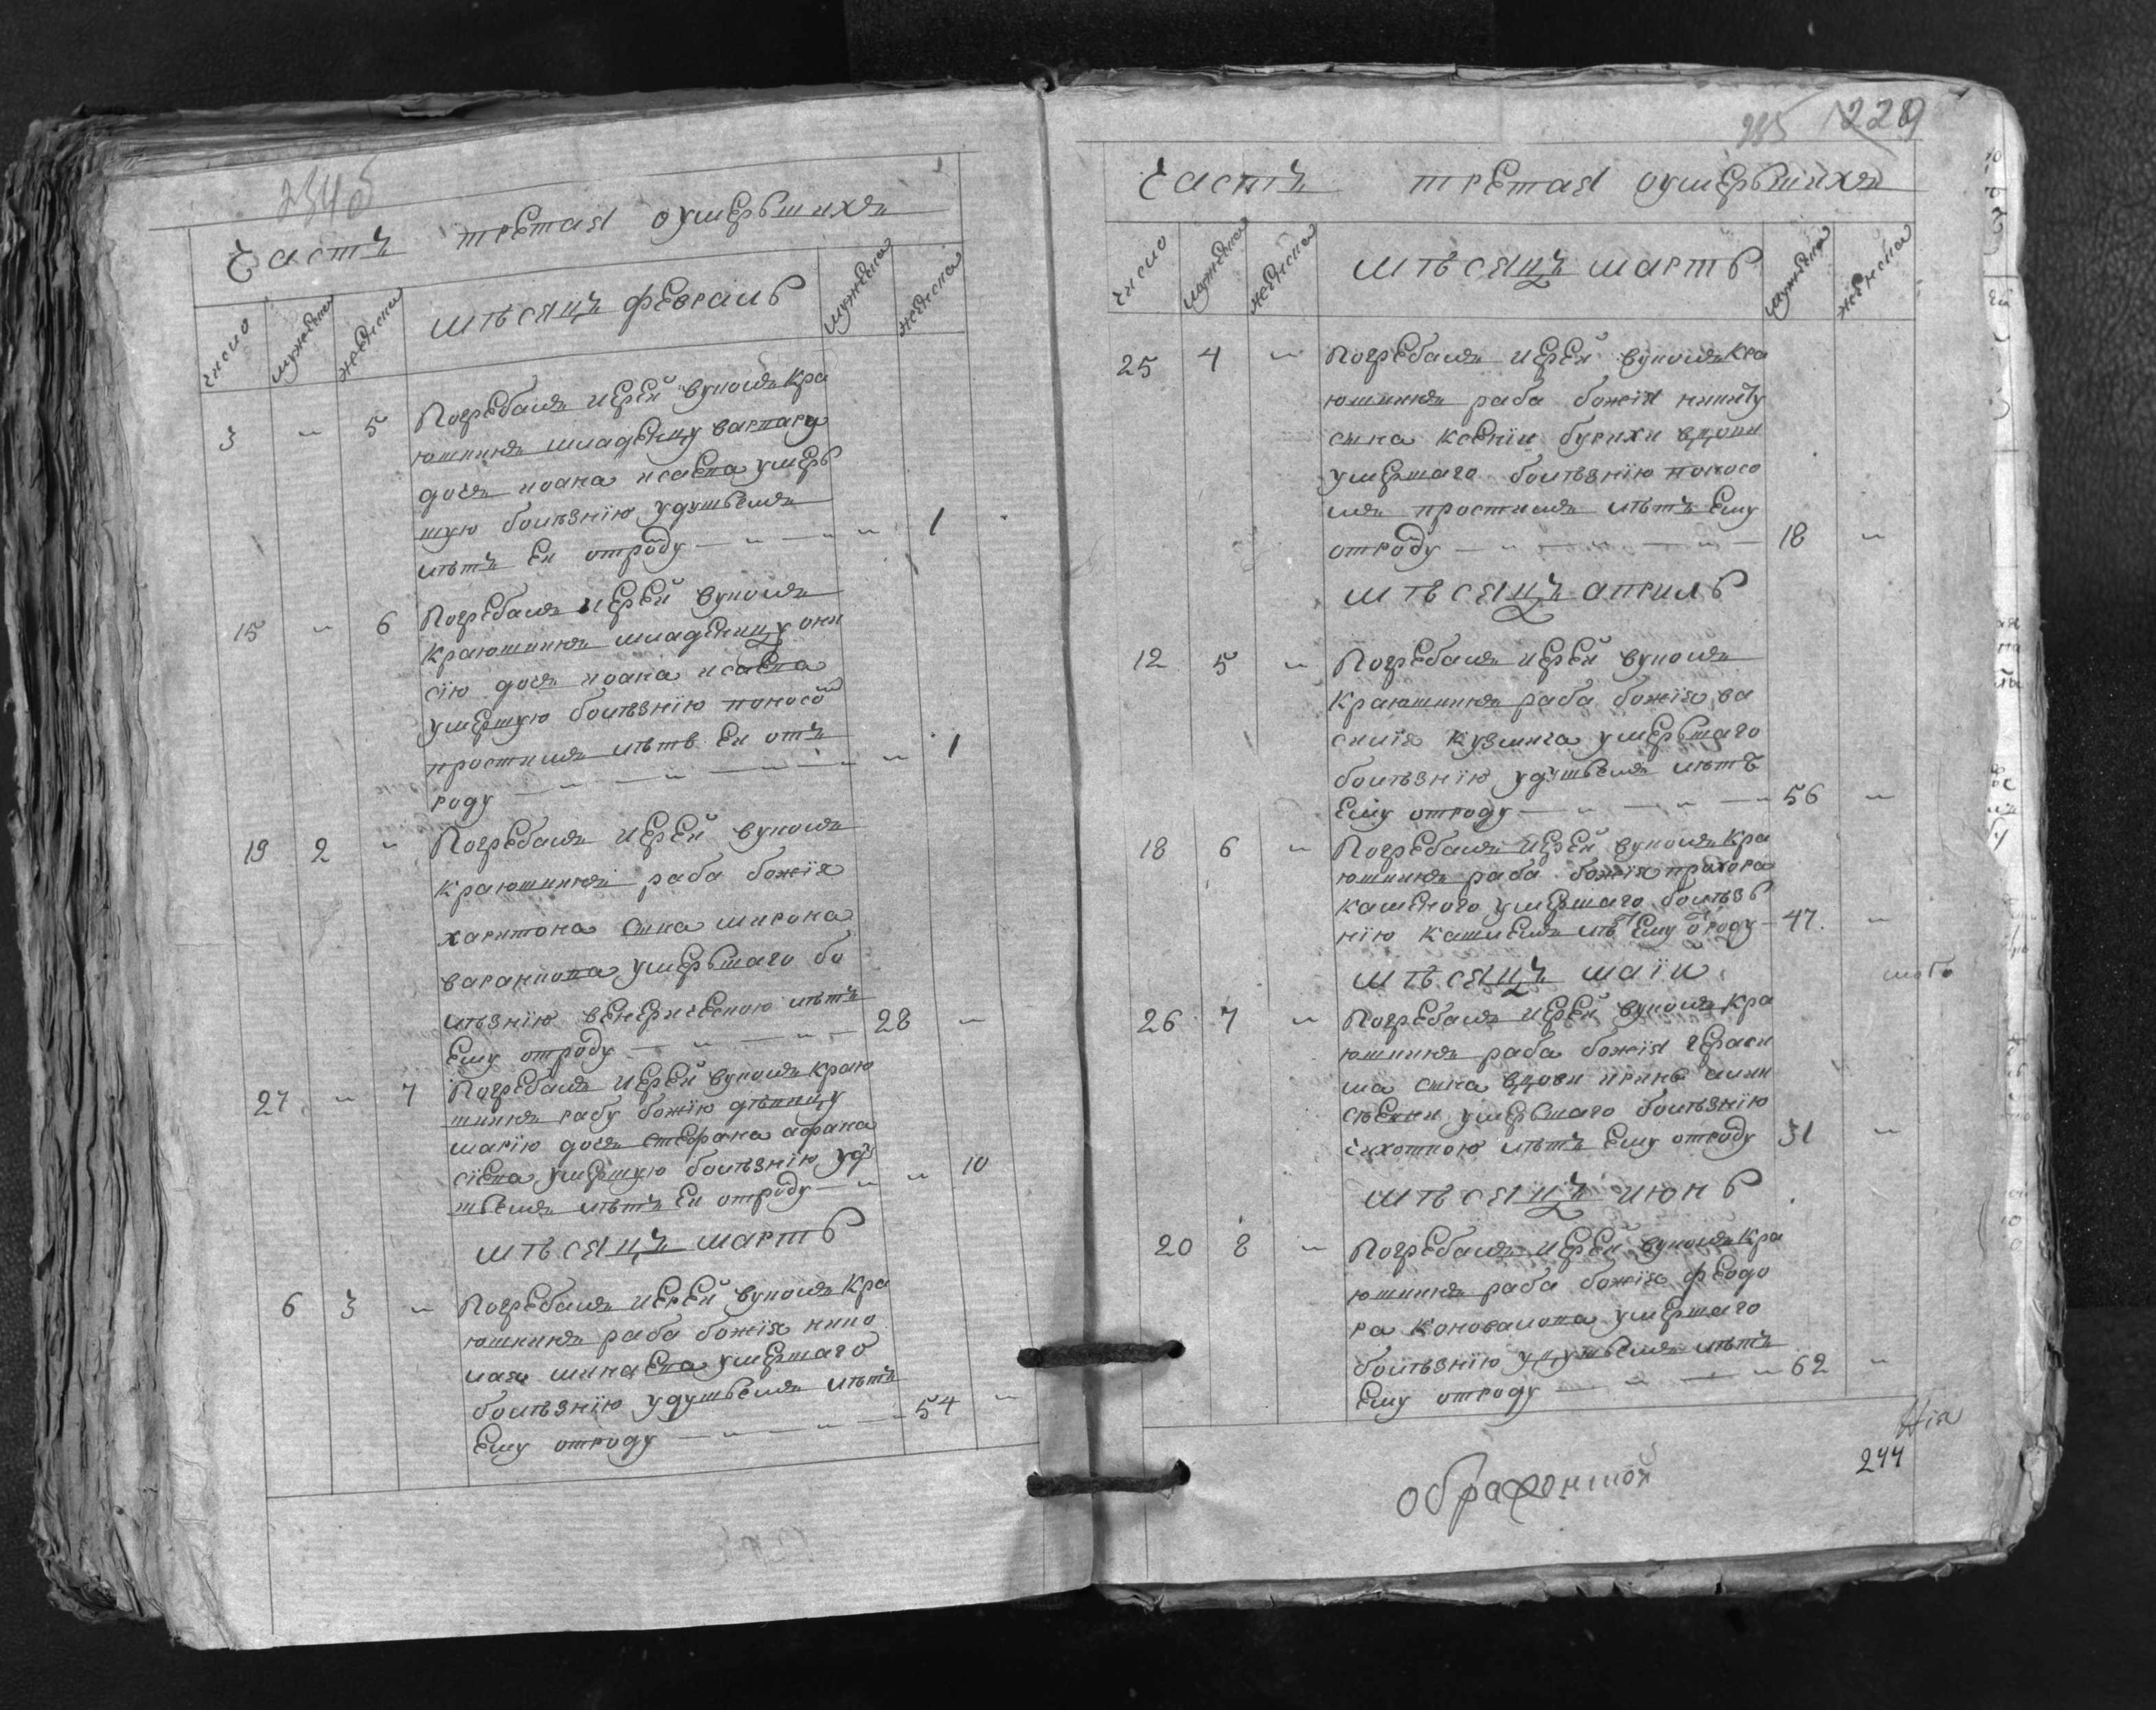 234б
Часть третая оумершихъ
число мужеска женска мѣсяцъ февраль мужеска женска
3 " 5 Погребалъ иерей вуколъ кра
юшкинъ младенцу варвару
дочь иоана исаева умерь
шую болѣзнію удушьемъ
лѣтъ ей отроду — " — " " 1
15 " 6 Погребалъ иерей вуколъ
краюшкинъ младеницу они
сію дочь иоана исаева
умершую болѣзнію поносо
простимъ лѣтъ ей отъ
роду — " — " — " — " " 1
19 2 " Погребалъ иерей вуколъ
краюшкинъ раба божія
харитона сина мирона
умерьшаго бо
лѣзнію венерическою лѣтъ
ему отроду — " — " — 28 "
27 " 7 Погребалъ иерей вуколъ краю
шкинъ рабу божію дѣвицу
марію дочь стефана афана
сіева умершую болѣзнію уду
шьемъ лѣтъ ей отроду — " " 10
мѣсяцъ марть
6 3 " Погребалъ иерей вуколъ кра
юшкинъ раба божія нико
лая минаева умершаго
болѣзнію удушьемъ лѣтъ
ему отроду — " — " — 54 "
229
Часть третая оумерьшихъ
число мужеска женска мѣсяцъ марть мужеска женска
25 4 " Погребалъ иерей вуколъ кра
юшкинъ раба божія никиту
сина ксеніи бурихи вдови
умершаго болѣзнію поносо
мъ простимъ лѣтъ ему
отроду — " — " — " — 18 "
мѣсяцъ априль
12 5 " Погребалъ иерей вуколъ
краюшкинъ раба божія ва
силія кузмича умерьшаго
болѣзнію удушьемъ лѣтъ
ему отроду — " — " — 56 "
18 6 " Погребалъ иерей вуколъ кра
юшкинъ раба божія прахора
каменого умершаго болѣзь
нію кашлемъ лѣ ему ѿроду — 47 "
мѣсяцъ маіи
26 7 " Погребалъ иерей вуколъ кра
юшкинъ раба божія гераси
ма сина вдови ирини
умерьшаго болѣзнію
чихотною лѣтъ ему отроду 31 "
мѣсяцъ июнь
20 8 " Погребалъ иерей вуколъ кра
юшкинъ раба божія феодо
ра коновалова умершаго
болѣзнію удушьемъ лѣтъ
ему отроду — " — " 62 "
244